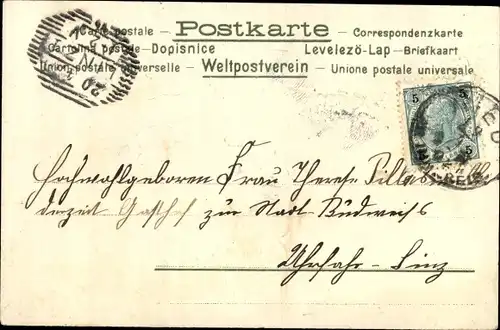 Carte postale – Postkarte – Correspondenzkarte
Cartolina postale – Dopisnice Levelezö-Lap – Briefkaart
Union postale universelle – Weltpostverein – Unione postale universale
5 5
Hochwohlgeboren Frau Therese
derzeit Gasthof zur Stadt Budweis
Uhrfahr-Linz